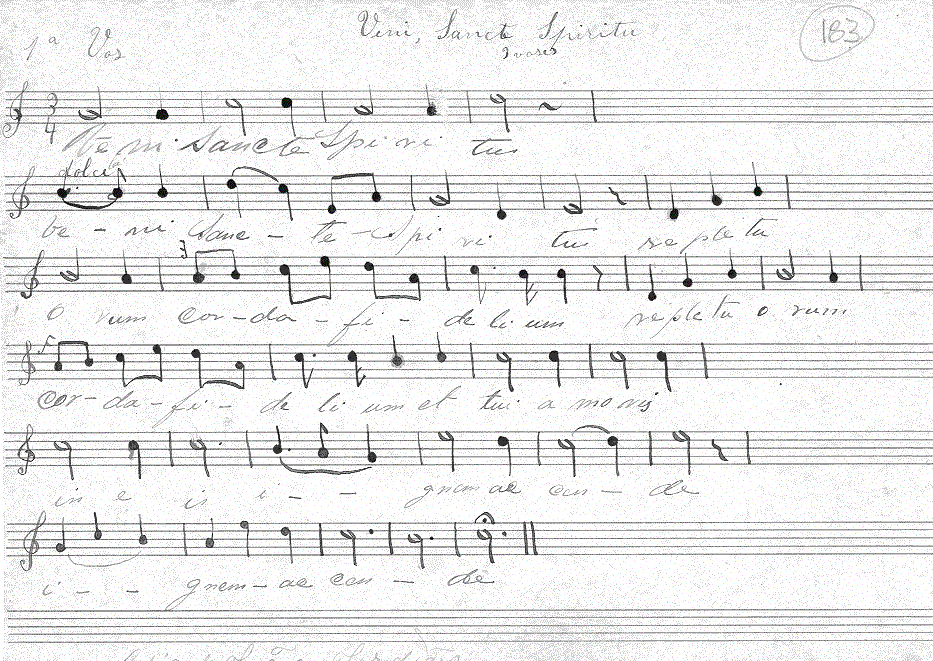 1ª Voz
Veni, Sancte Spiritu
3 vozes
183
3
4
Ve ni Sancte Spi ri tus
dolce
ve - ni Sanc - te - Spi ri tus reple tu
3
o rum cor - da - fi - de li um reple tu o rum
cor - da - fi - de li um et tui a moris
in e is i - - gnem ac cen - de
i - - gnem - ac cen - de